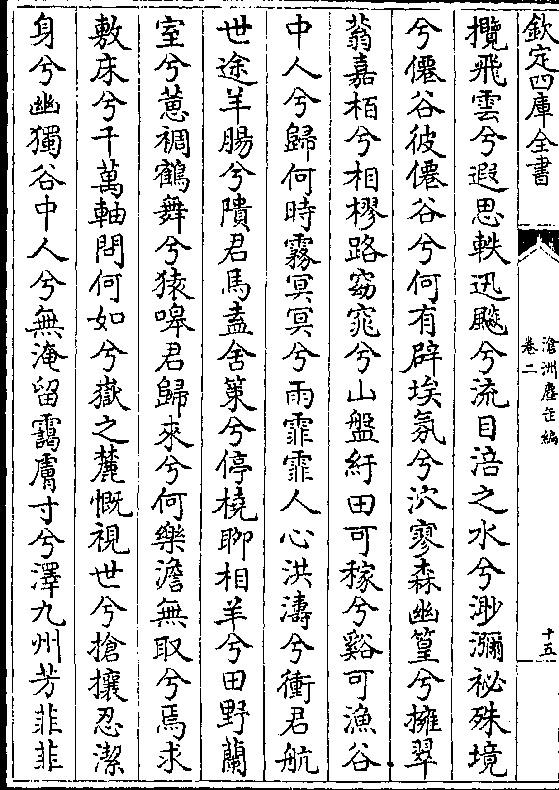 欽定四庫全書
滄洲塵缶編
卷二
十五
攬飛雲兮遐思軼迅飈兮流目涪之水兮渺瀰祕殊境
兮僊谷彼僊谷兮何有辟埃氛兮泬寥森幽篁兮擁翠
蓊嘉栢兮相樛路窈窕兮山盤紆田可稼兮谿可漁谷
中人兮歸何時霧冥冥兮雨霏霏人心洪濤兮衝君航
世途羊腸兮隤君馬盍舍策兮停橈聊相羊兮田野蘭
室兮蕙裯鶴舞兮猿嘷君歸來兮何樂澹無取兮焉求
敷床兮千萬軸問何如兮嶽之麓慨視世兮搶攘忍潔
身兮幽獨谷中人兮無淹留靄膚寸兮澤九州芳菲菲